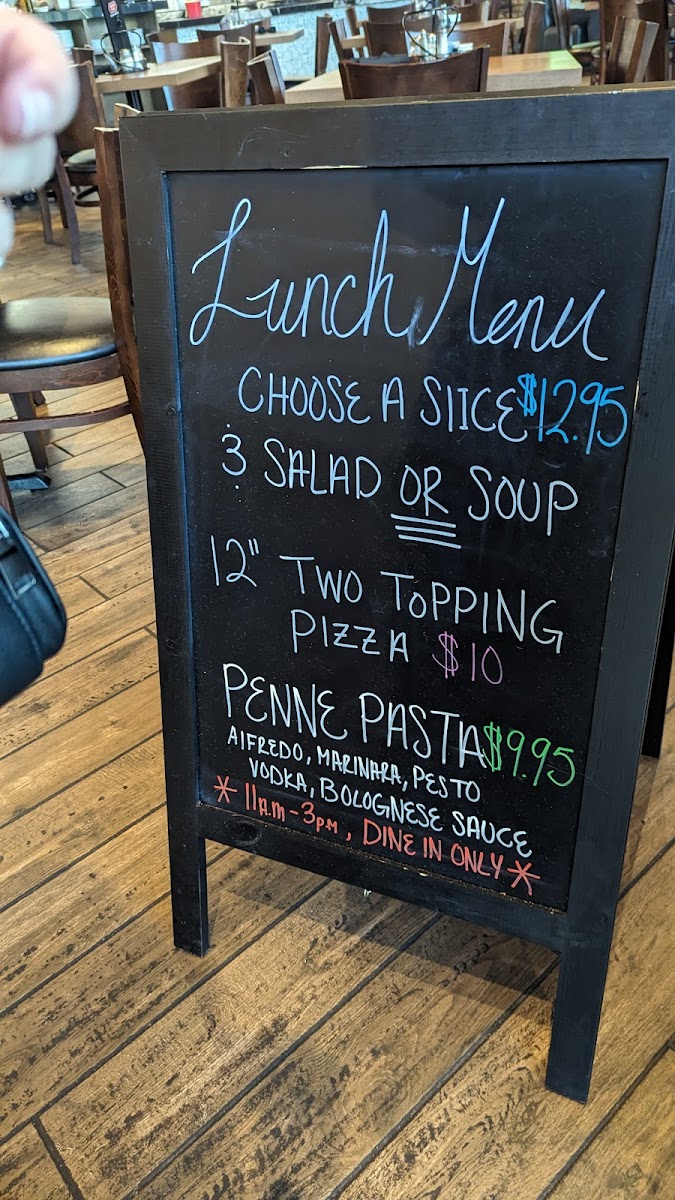 Lunch Menu
CHOOSE A SlICE $12.95
& SALAD OR SOUP
12" TWO TOPPING
PIZZA $10
PENNE PASTA $9.95
AlFREDO, MARINARA, PESTO
VODKA, BOLOGNESE SAUCE
* 11A.M - 3P.M, DINE IN ONLY *